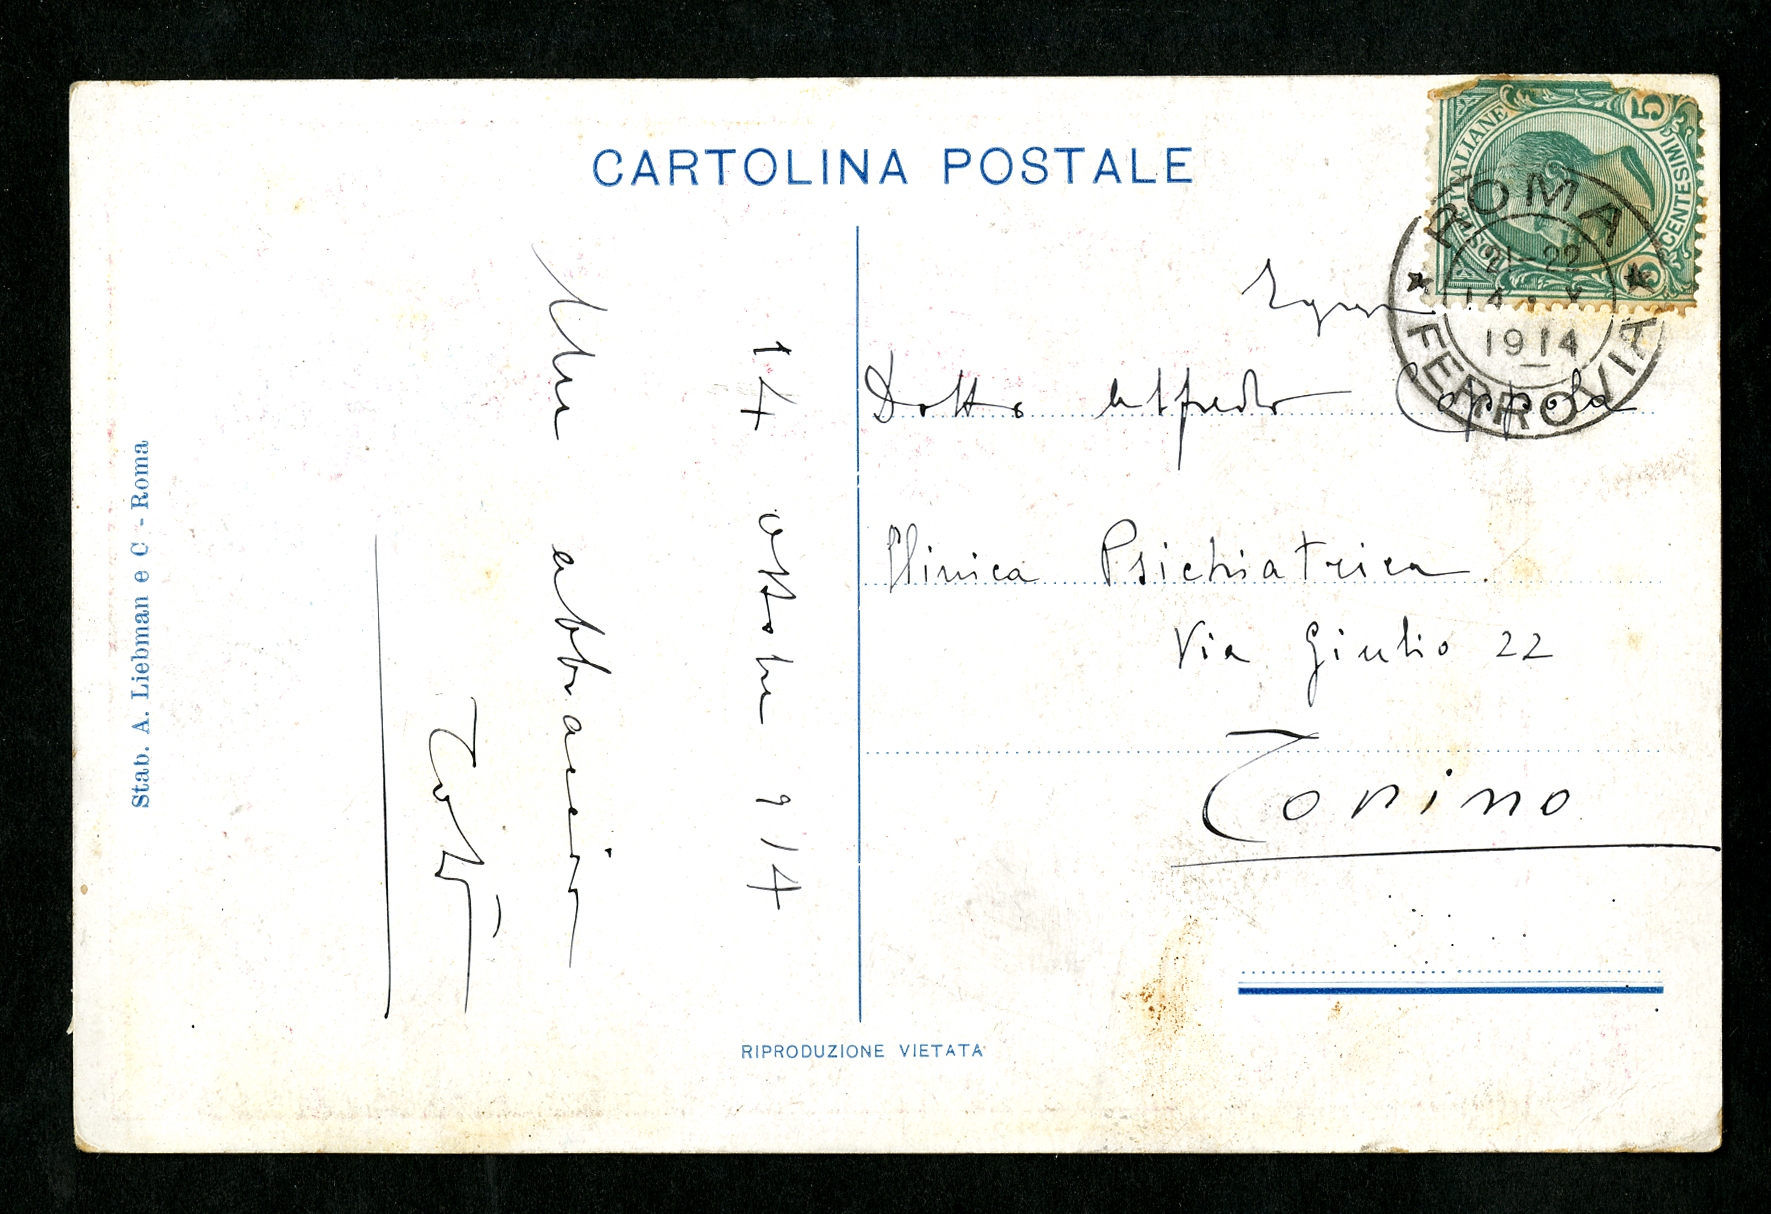 CARTOLINA POSTALE
POSTE ITALIANE
5 CENTESIMI 5
ROMA
21-22
14 · X
1914
FERROVIA
14 ottobre 914
Un abbraccio
Dott. Alfredo Coppola
Clinica Psichiatrica.
Via Giulio 22
Torino
Stab. A. Liebman e C - Roma
RIPRODUZIONE VIETATA